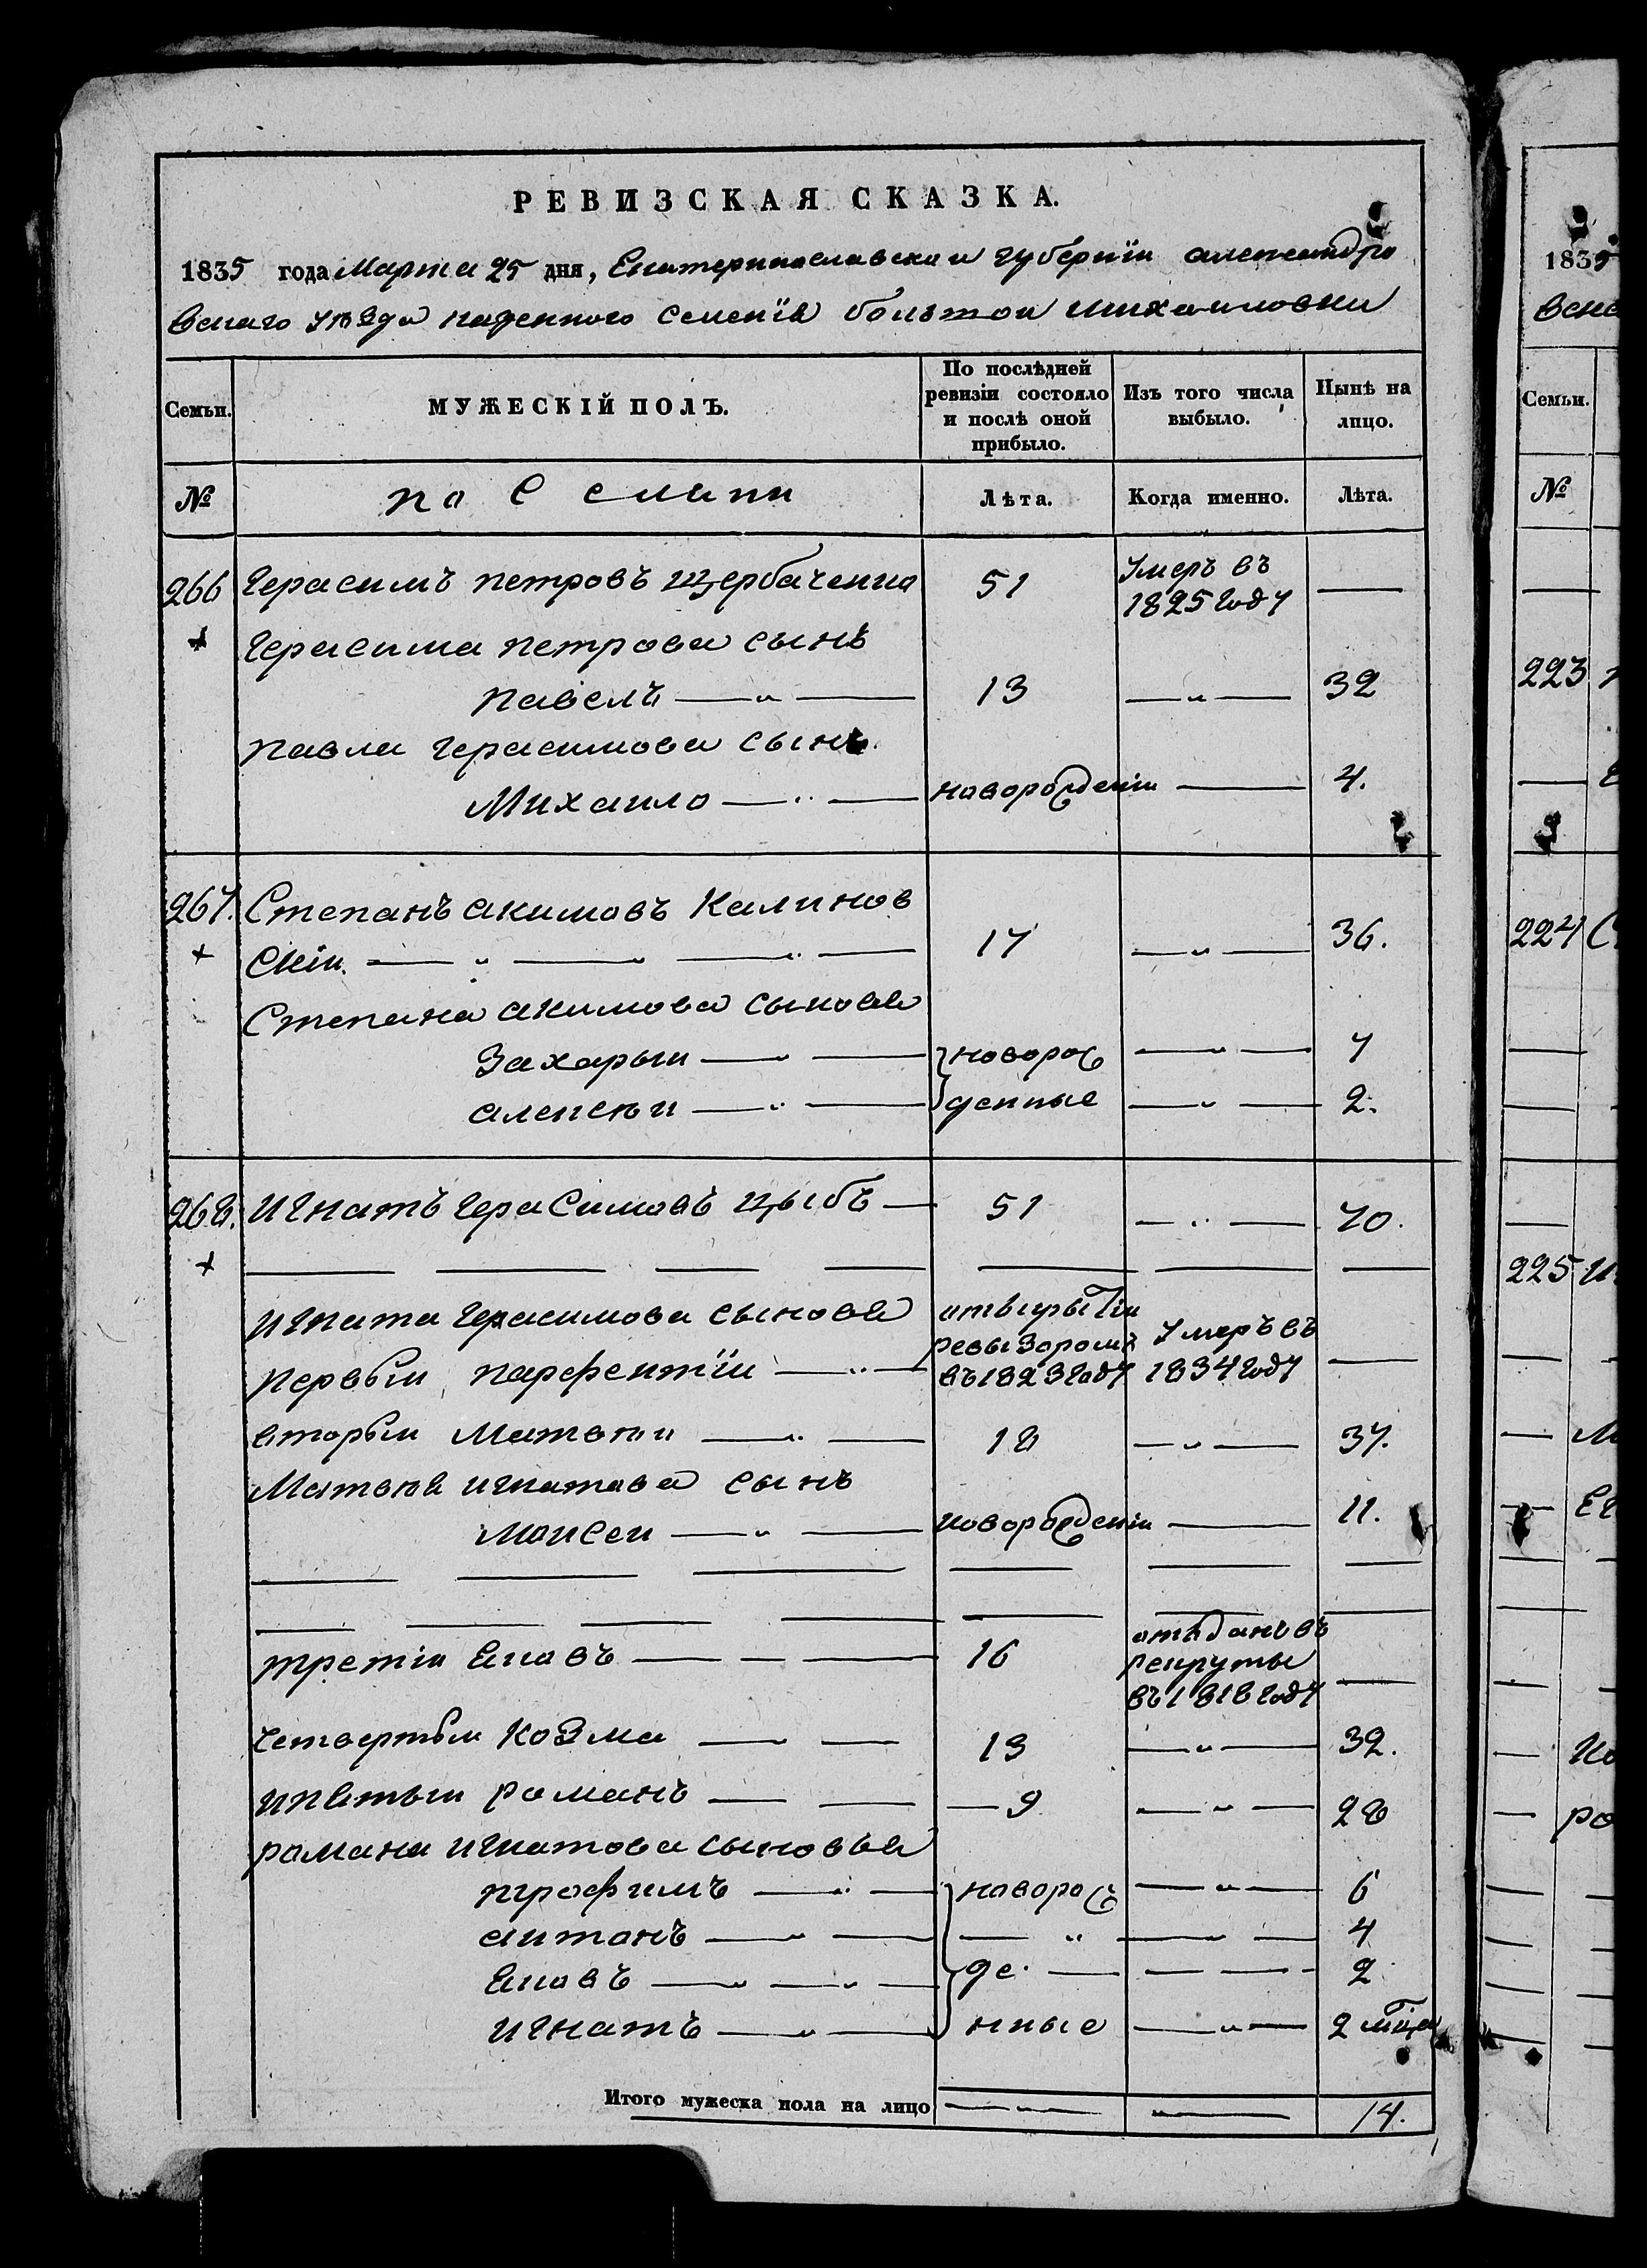 РЕВИЗСКАЯ СКАЗКА.
1835 года Марта 25 дня, Екатеринославскои губернїи александро
1835
вскаго уѣзда казенного селенїя большои михаиловки
Семьи.
МУЖЕСКІЙ ПОЛЪ.
По послѣдней
ревизіи состояло
и послѣ оной
прибыло.
Изъ того числа
выбыло.
Нынѣ на
лицо.
Семьи.
№
Лѣта.
Когда именно.
Лѣта.
№
266 Герасимъ петровъ щербаченко 51 Умеръ въ
1825 году —
Герасима петрова сынъ
павелъ — „ — 13 — „ — 32
223
павла герасимова сынъ
Михаило — „ — новорожденіи — 4.
267. Степанъ акимовъ Калинов
скіи. — „ — „ — „ — 17 — „ — 36.
224
Степана акимова сыновя
Захарыи — „ — новорож — „ — 7
алексѣи — „ — денные — „ — 2.
268. Игнатъ герасимовъ цыбъ — 51 — „ — 70.
225
игната герасимова сыновя
первыи парфентїи — „ —
ревызоромъ
въ 1823 году
Умеръ въ
1834 году —
вторыи Матвѣи — „ — 18 — „ — 37.
Матвѣя игнатова сынъ
моисеи — „ — новорожденіи — 11.
третіи Яковъ — — — 16
отъданъ въ
рекруты
въ 1818 году —
четвертыи Козма — — 13 — „ — 32.
ипятыи романъ — — — 9 — „ — 28
романа игнатова сыновья
трофимъ — „ — новорож — „ — 6
антонъ — „ — — „ — „ — 4
Яковъ — „ — „ — де. — — — - 2
игнатъ — „ — нные — „ — 2 мѣца
Итого мужеска пола на лицо — — 14.